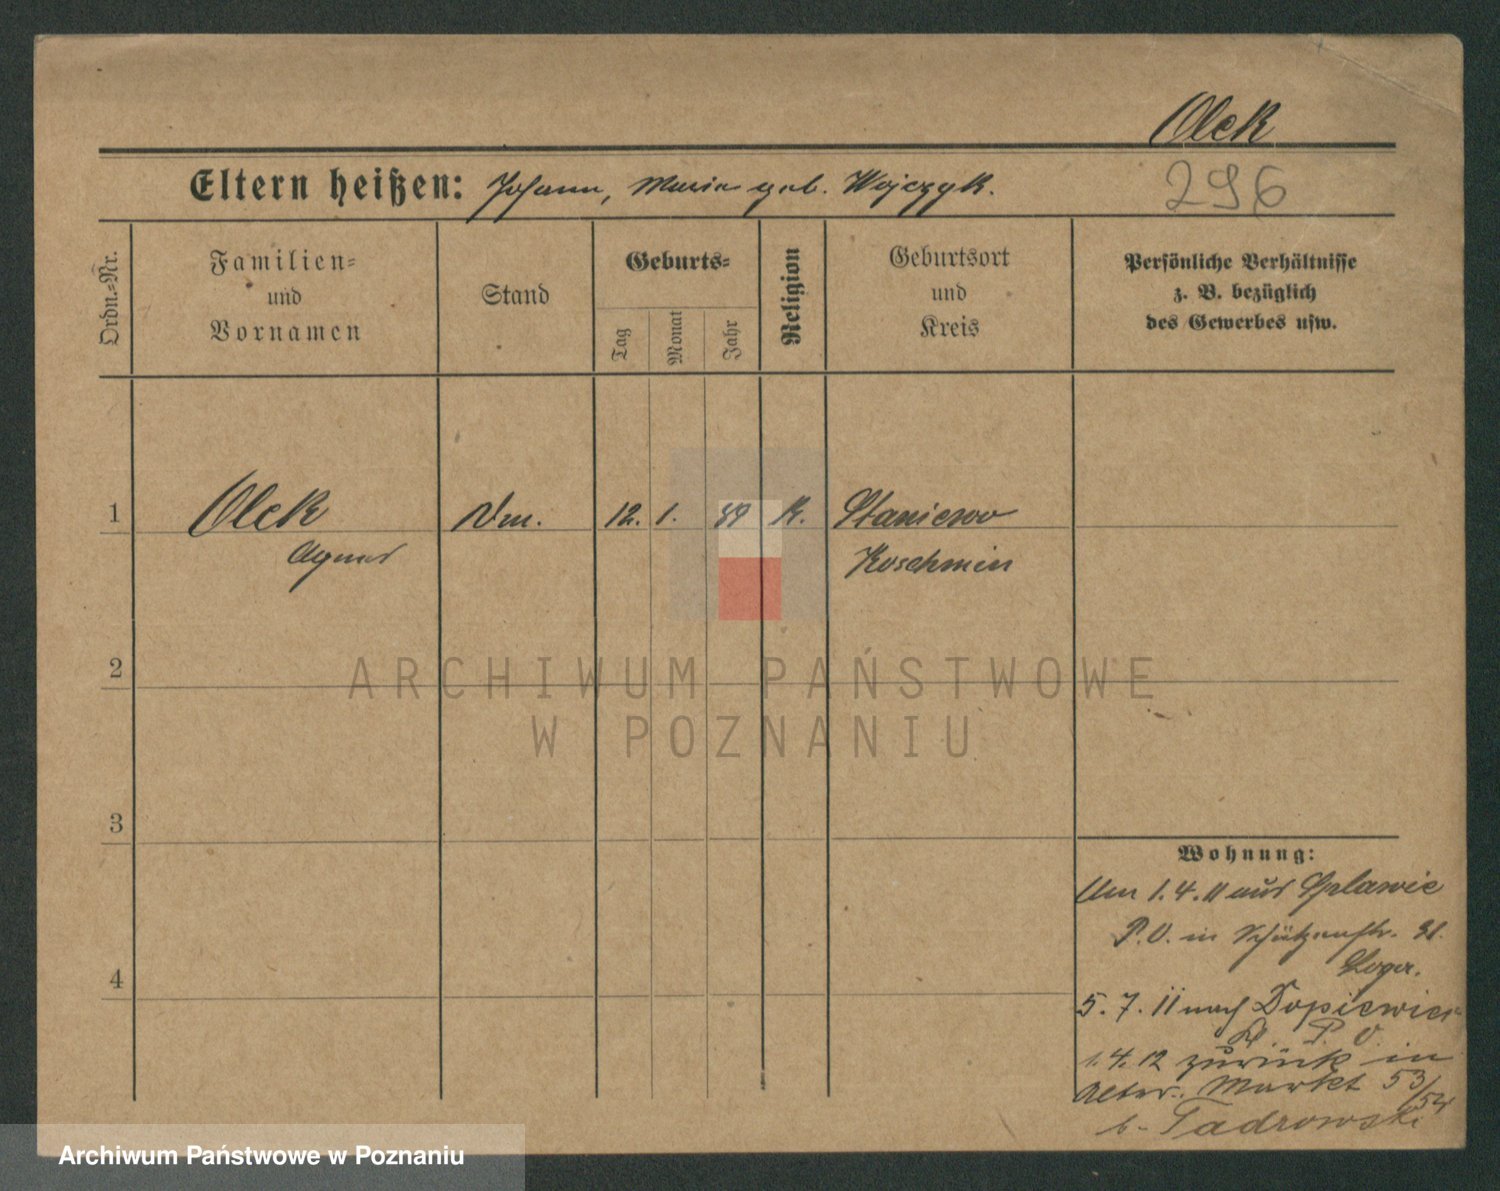 Olek
Eltern heißen: Johann, Maria geb. Wojczyk.
296
Ordn.=Nr.
Familien=
und
Vornamen
Stand
Geburts=
Tag
Monat
Jahr
Religion
Geburtsort
und
Kreis
Persönliche Verhältnisse
z. B. bezüglich
des Gewerbes usw.
1 Olek 12. 1. 89 K. Staniewo
Agnes Koschmin
2
3
4
Wohnung:
Am 1.4.11 aus Splawie
P.O. in Schützenstr.
5.7.11 nach Dopiewiec
P. O.
1.4.12 zurück in
Alter Markt 53/54
b. Tadrowski
ARCHIWUM PAŃSTWOWE
W POZNANIU
Archiwum Państwowe w Poznaniu